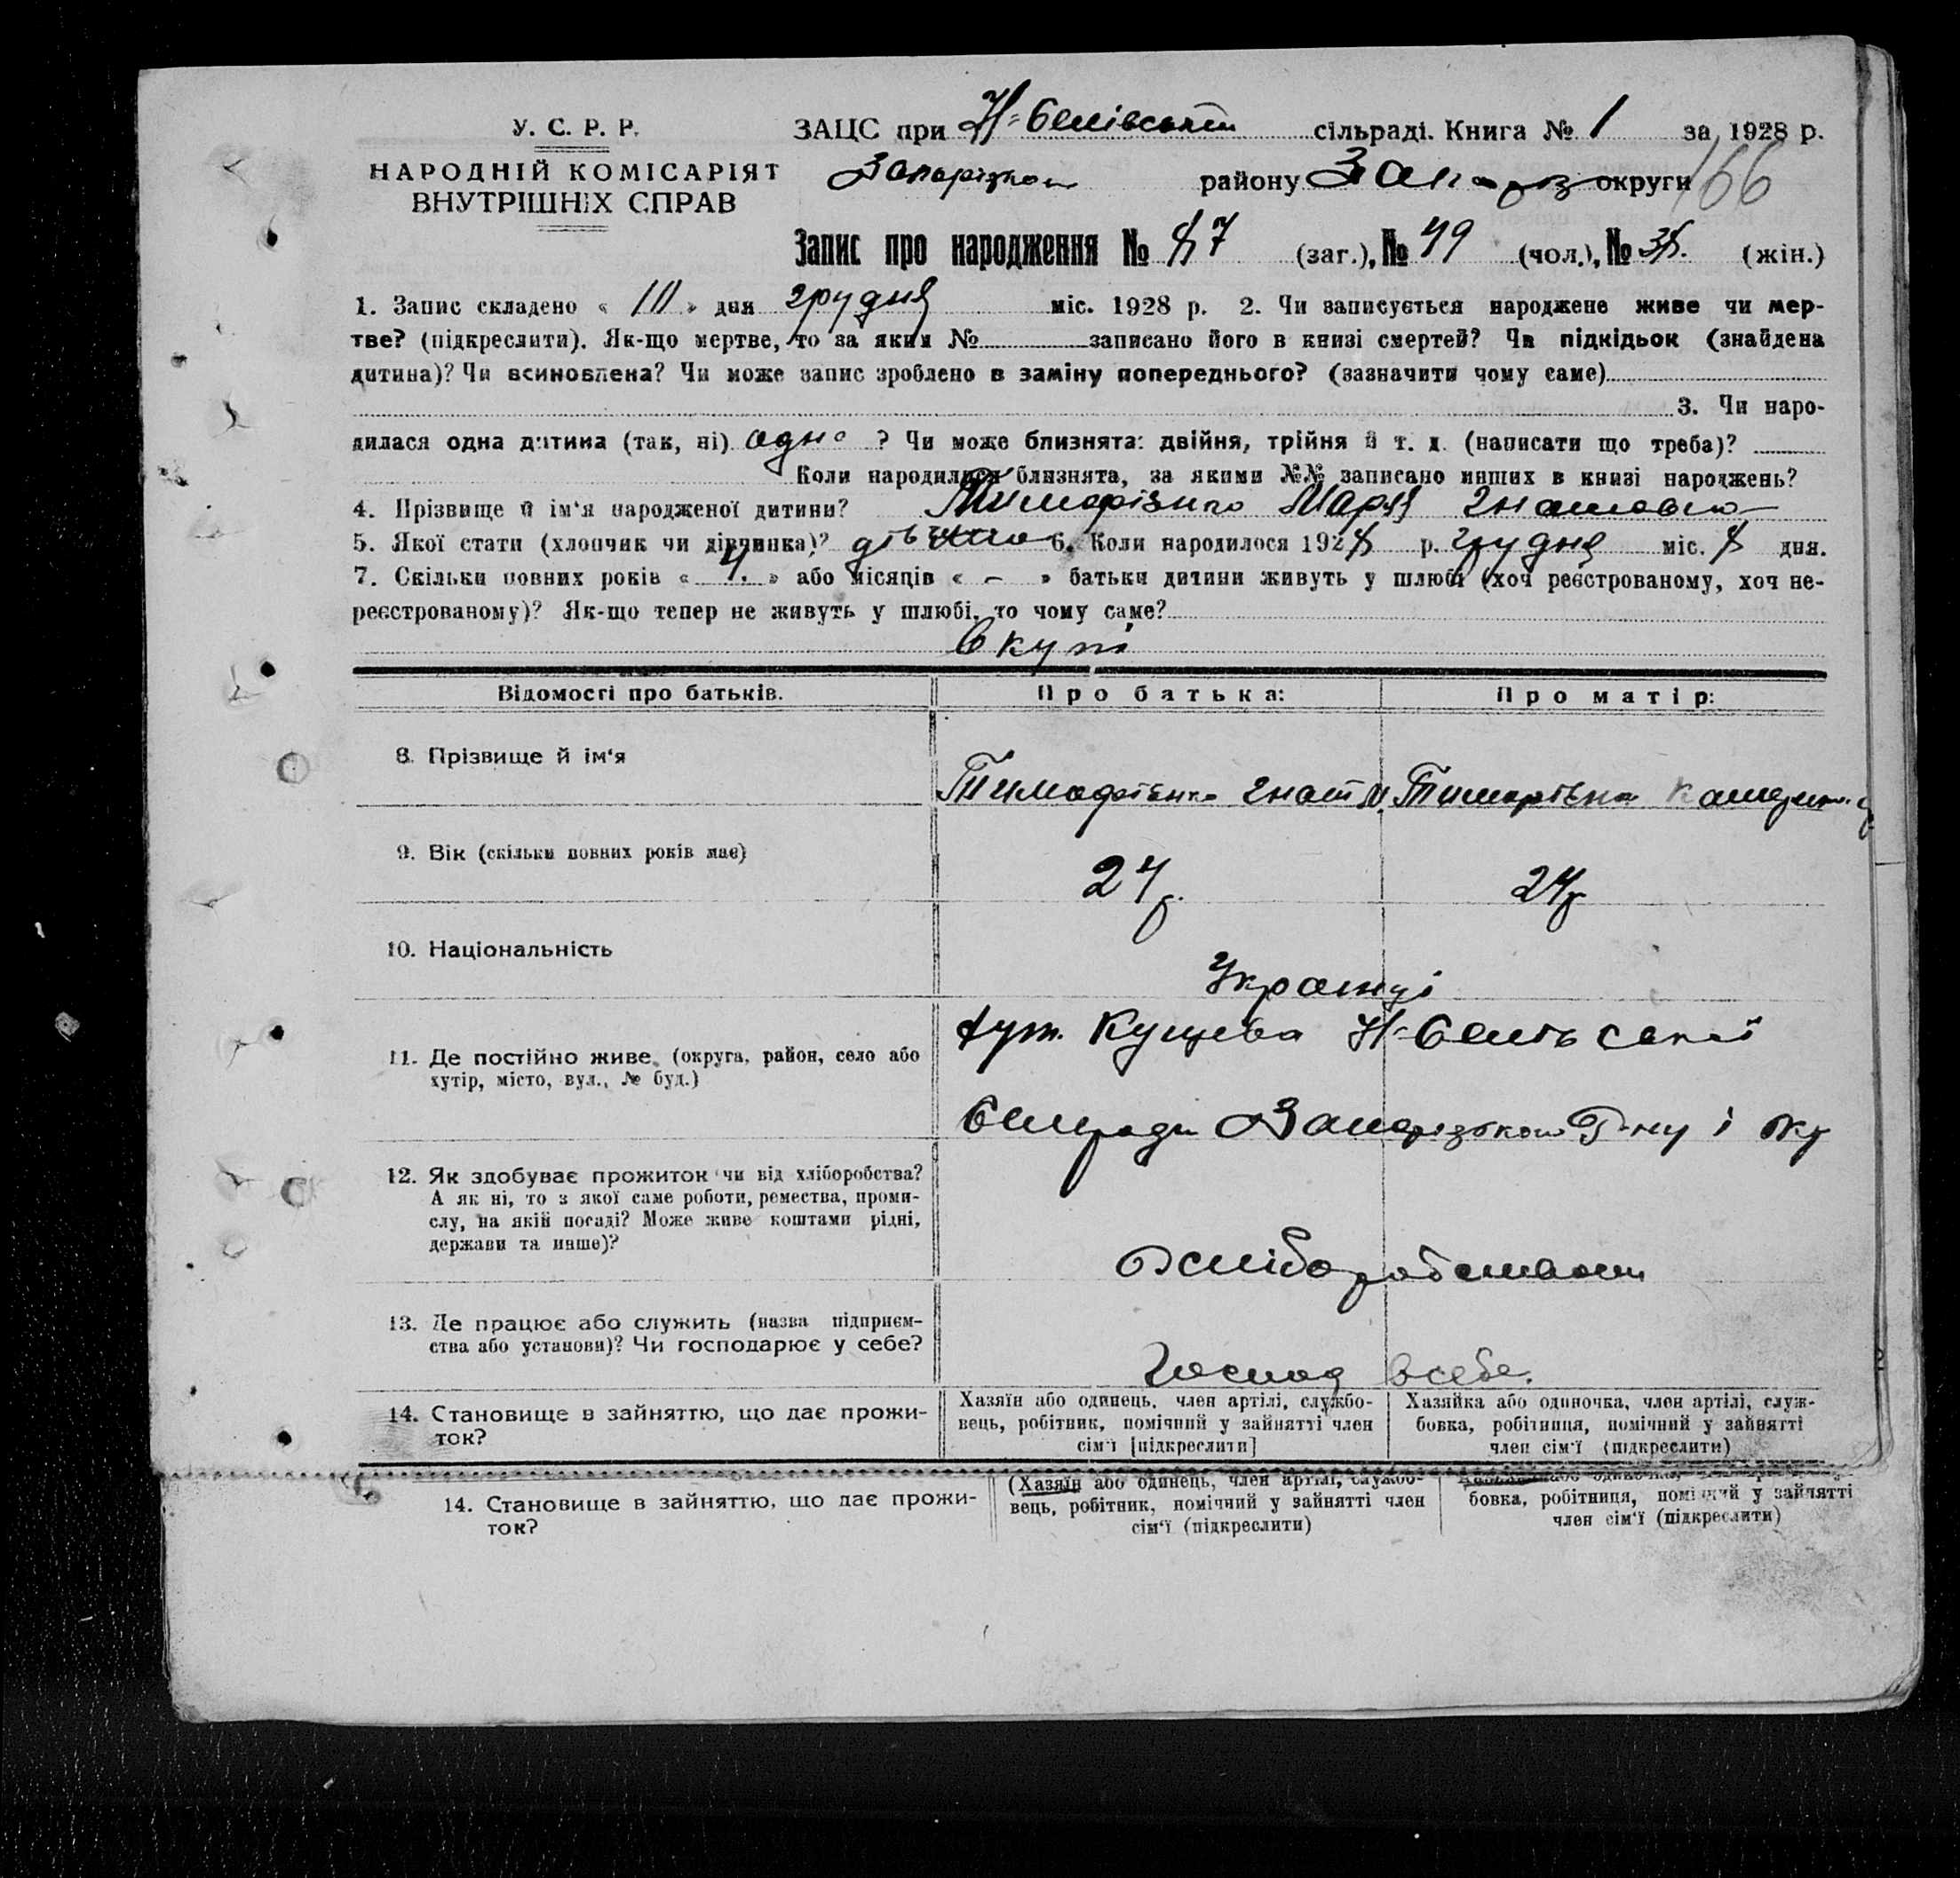 У. С. Р. Р.
НАРОДНІЙ КОМІСАРІЯТ
ВНУТРІШНІХ СПРАВ
ЗАЦС при сільраді. Книга № 1 за 1928 р.
району Запоріз округи 166
Запис про народження № 87 (заг.), № 49 (чол.), № 38. (жін.)
1. Запис складено « 10 » дня грудня міс. 1928 р. 2. Чи записується народжене живе чи мер-
тве? (підкреслити). Як-що мертве, то за яким № записано його в книзі смертей? Чи підкідьок (знайдена
дитина)? Чи всиновлена? Чи може запис зроблено в заміну попереднього? (зазначити чому саме)
3. Чи наро-
дилася одна дитина (так, ні) одна ? Чи може близнята: двійня, трійня й т. д. (написати що треба)?
Коли народилися близнята, за якими №№ записано инших в книзі народжень?
4. Прізвище й ім'я народженої дитини? Марія Гнатовна
5. Якої стати (хлопчик чи дівчинка)? 6. Коли народилося 1928 р. грудня міс. 8 дня.
7. Скільки повних років « 4. » або місяців « - » батьки дитини живуть у шлюбі (хоч реєстрованому, хоч не-
реєстрованому)? Як-що тепер не живуть у шлюбі, то чому саме?
Вкупі
Відомості про батьків. Про батька: Про матір:
8. Прізвище й ім'я
Гнат
9. Вік (скільки повних років має)
24 р. 24 р
10. Національність
Українці
11. Де постійно живе (округа, район, село або
хутір, місто, вул., № буд.)
хут. Кущева
Сельради Запорізького Р-ну і окр
12. Як здобуває прожиток чи від хліборобства?
А як ні, то з якої саме роботи, ремества, проми-
слу, на якій посаді? Може живе коштами рідні,
держави та инше)?
Хліборобством
13. Де працює або служить (назва підприєм-
ства або установи)? Чи господарює у себе?
Господ в себе.
14. Становище в зайняттю, що дає прожи-
ток?
Хазяїн або одинець, член артілі, службо-
вець, робітник, помічний у зайнятті член
сім'ї [підкреслити]
Хазяйка або одиночка, член артілі, служ-
бовка, робітниця, помічний у зайнятті
член сім'ї (підкреслити)
14. Становище в зайняттю, що дає прожи-
ток?
(Хазяїн або одинець, член артілі, службо-
вець, робітник, помічний у зайнятті член
сім'ї (підкреслити)
бовка, робітниця, помічний у зайнятті
член сім'ї (підкреслити)